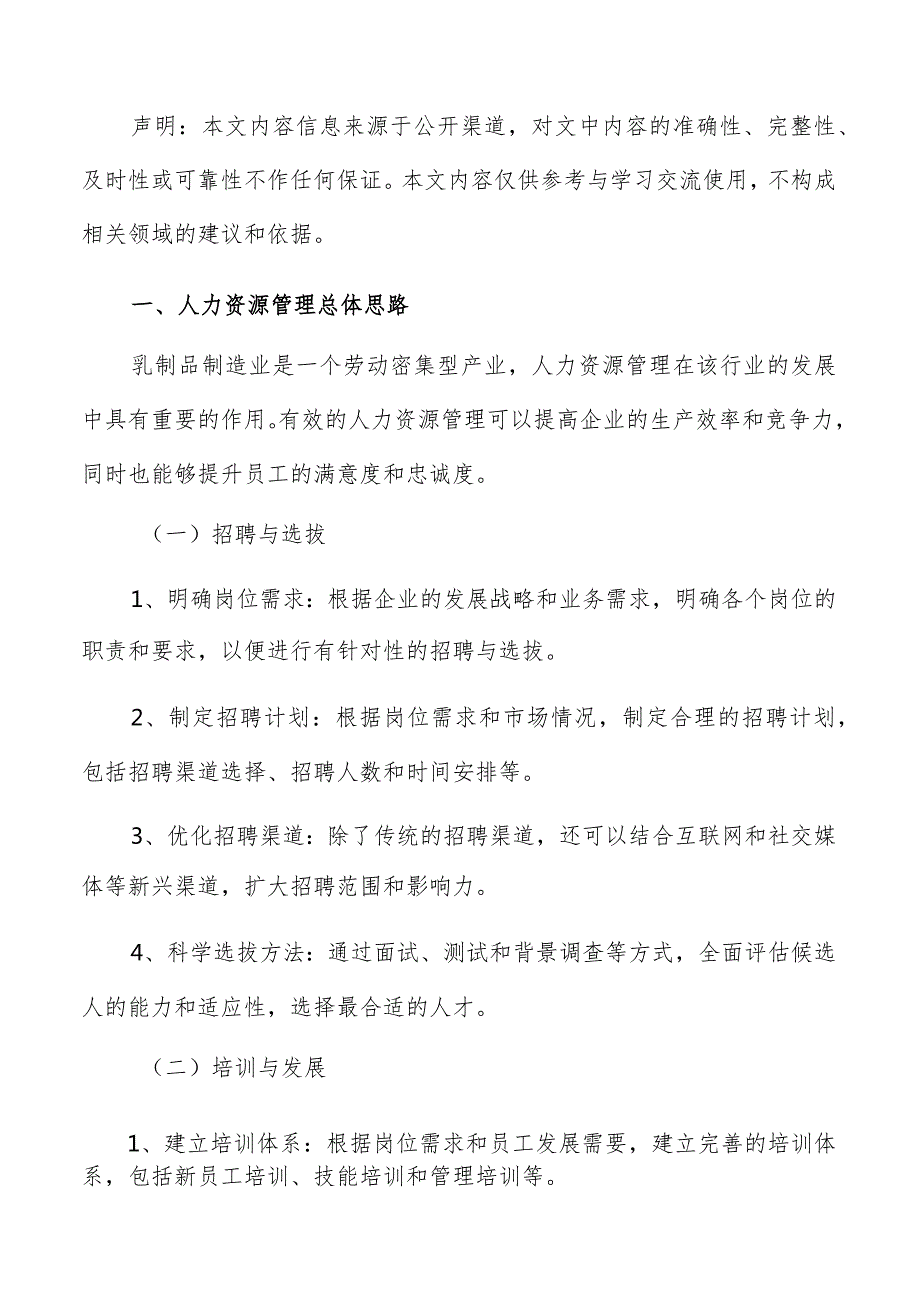 声明：本文内容信息来源于公开渠道，对文中内容的准确性、完整性、
及时性或可靠性不作任何保证。本文内容仅供参考与学习交流使用，不构成
相关领域的建议和依据。
一、人力资源管理总体思路
乳制品制造业是一个劳动密集型产业，人力资源管理在该行业的发展
中具有重要的作用。有效的人力资源管理可以提高企业的生产效率和竞争力，
同时也能够提升员工的满意度和忠诚度。
（一）招聘与选拔
1、明确岗位需求：根据企业的发展战略和业务需求，明确各个岗位的
职责和要求，以便进行有针对性的招聘与选拔。
2、制定招聘计划：根据岗位需求和市场情况，制定合理的招聘计划，
包括招聘渠道选择、招聘人数和时间安排等。
3、优化招聘渠道：除了传统的招聘渠道，还可以结合互联网和社交媒
体等新兴渠道，扩大招聘范围和影响力。
4、科学选拔方法：通过面试、测试和背景调查等方式，全面评估候选
人的能力和适应性，选择最合适的人才。
（二）培训与发展
1、建立培训体系：根据岗位需求和员工发展需要，建立完善的培训体
系，包括新员工培训、技能培训和管理培训等。